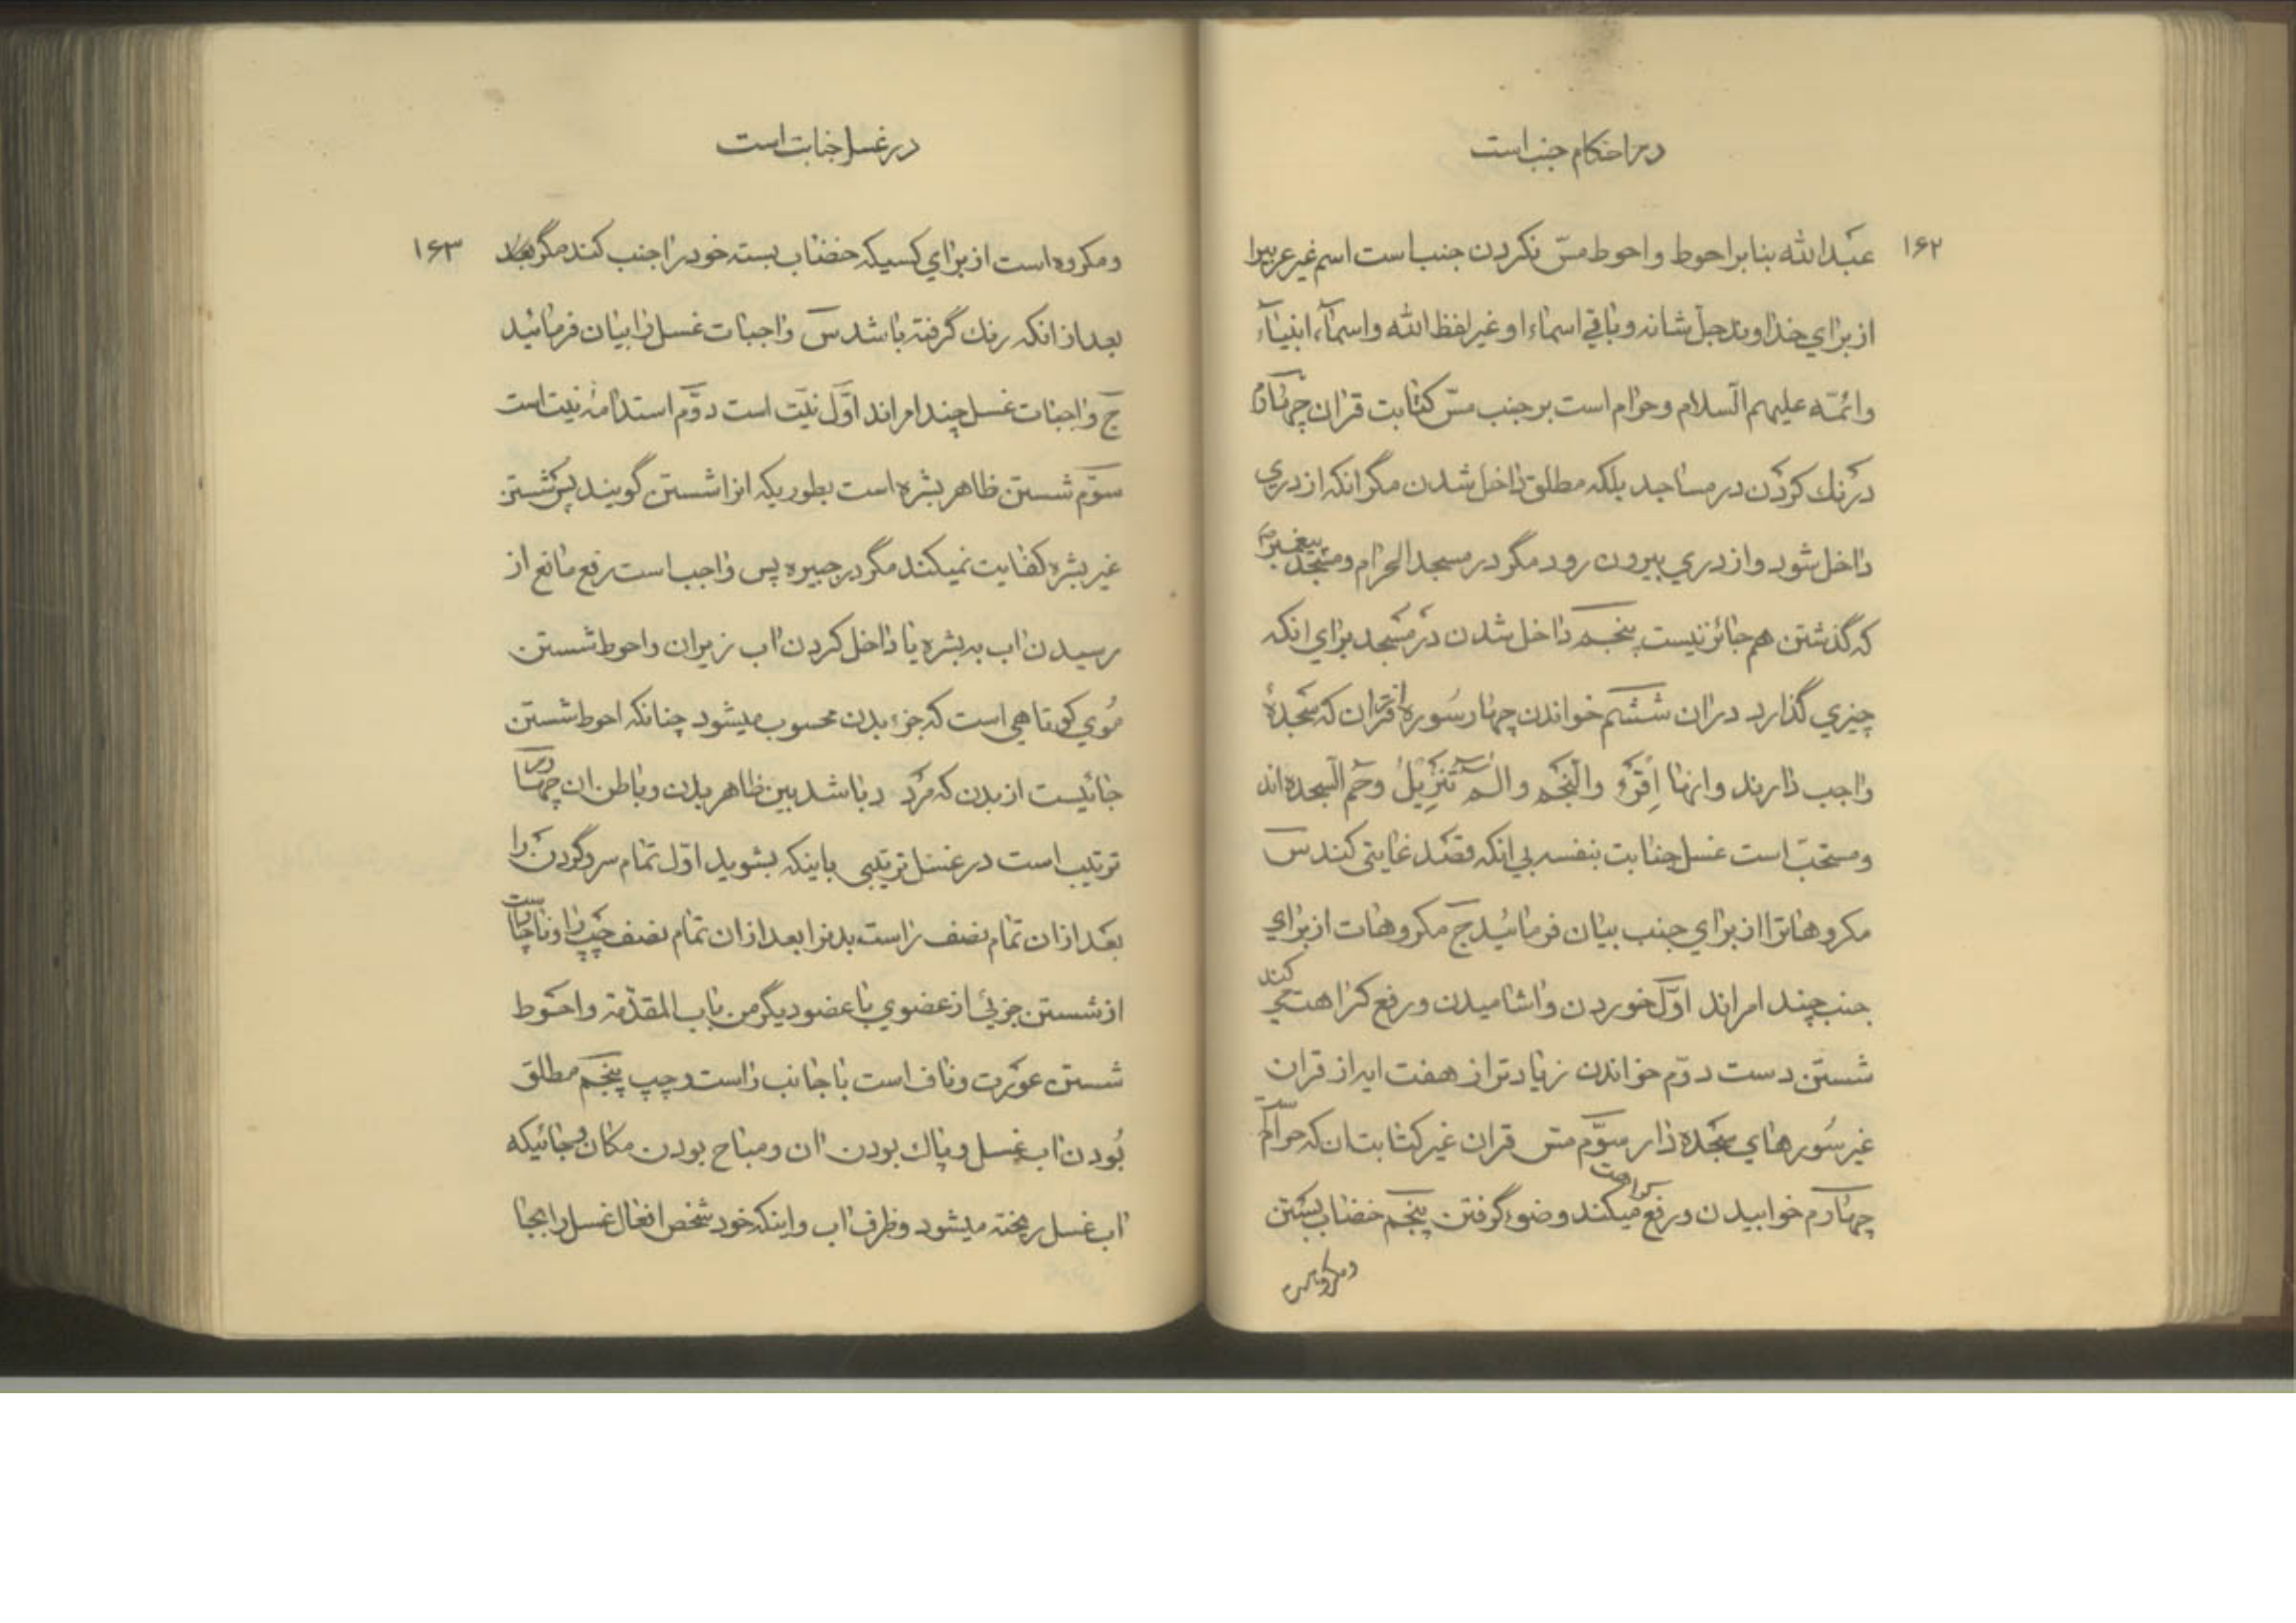 در احکام جنب است
۱۶۲
عبدالله بنابر احوط و احوط مسّ نکردن جنب است اسم غیر عربیرا
از برای خداوند جلّ شانه و باقی اسماء او غیر لفظ الله و اسمآء انبیآء
و ائمّه علیهم السّلام و حرام است بر جنب مسّ کتابت قران چهارم
درنك کردن در مساجد بلکه مطلق داخل شدن مگر انکه از دری
داخل شود و از دری بیرون رود مگر در مسجد الحرام و مسجد پیغمبر
که گذشتن هم جائز نیست پنجم داخل شدن در مسجد برای انکه
چیزی گذارد در ان ششم خواندن چهار سوره از قران که سجدهٔ
واجب دارند و انها اِقرء و النّجم و الم تنزیلُ و حم السّجده اند
و مستحبّ است غسل جنابت بنفسه بی انکه قصد غایتی کند س
مکروهاترا از برای جنب بیان فرمائید ج مکروهات از برای
جنب چند امراند اوّل خوردن و اشامیدن و رفع کراهت میکند
شستن دست دوّم خواندن زیادتر از هفت ایه از قران
غیر سورهای سجده دار سوّم مس قران غیر کتابت ان که حرام است
چهارم خوابیدن و رفع کراهت میکند وضوء گرفتن پنجم خضاب بستن
در غسل جنابت است
۱۶۳
و مکروه است از برای کسیکه خضاب بسته خود را جنب کند مگر
بعد از انکه رنك گرفته باشد س واجبات غسل را بیان فرمائید
ج واجبات غسل چند امراند اوّل نیّت است دوّم استدامهٔ نیت است
سوّم شستن ظاهر بشره است بطوریکه انرا شستن گویند پس شستن
غیر بشره کفایت نمیکند مگر در جبیره پس واجب است رفع مانع از
رسیدن اب به بشره یا داخل کردن اب زیر ان و احوط شستن
موی کوتاهی است که جزء بدن محسوب میشود چنانکه احوط شستن
جائیست از بدن که مردد باشد بین ظاهر بدن و باطن ان چهارم
ترتیب است در غسل ترتیبی باینکه بشوید اوّل تمام سر و گردن را
بعد از ان تمام نصف راست بدنرا بعد از ان تمام نصف چپ را و ناچار است
از شستن جزئی از عضوی با عضو دیگر من باب المقدّمة و احوط
شستن عورت و ناف است با جانب راست و چپ پنجم مطلق
بودن اب غسل و پاك بودن ان و مباح بودن مکان و جائیکه
اب غسل ریخته میشود و ظرف اب و اینکه خود شخص افعال غسل را بجا